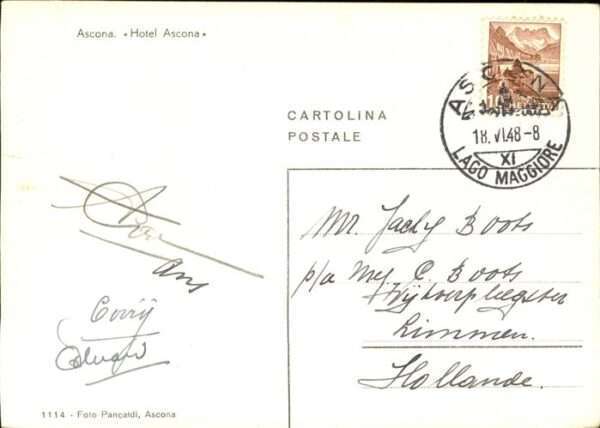 Ascona. • Hotel Ascona •
CARTOLINA
POSTALE
ASCONA
18.VI.48-8
XI
LAGO MAGGIORE
10
HELVETIA
Mr. Jacky Boots
p/a Mej. C. Boots
Limmen.
Hollande.
ans
Corrij
Eduard
1114 - Foto Pancaldi, Ascona